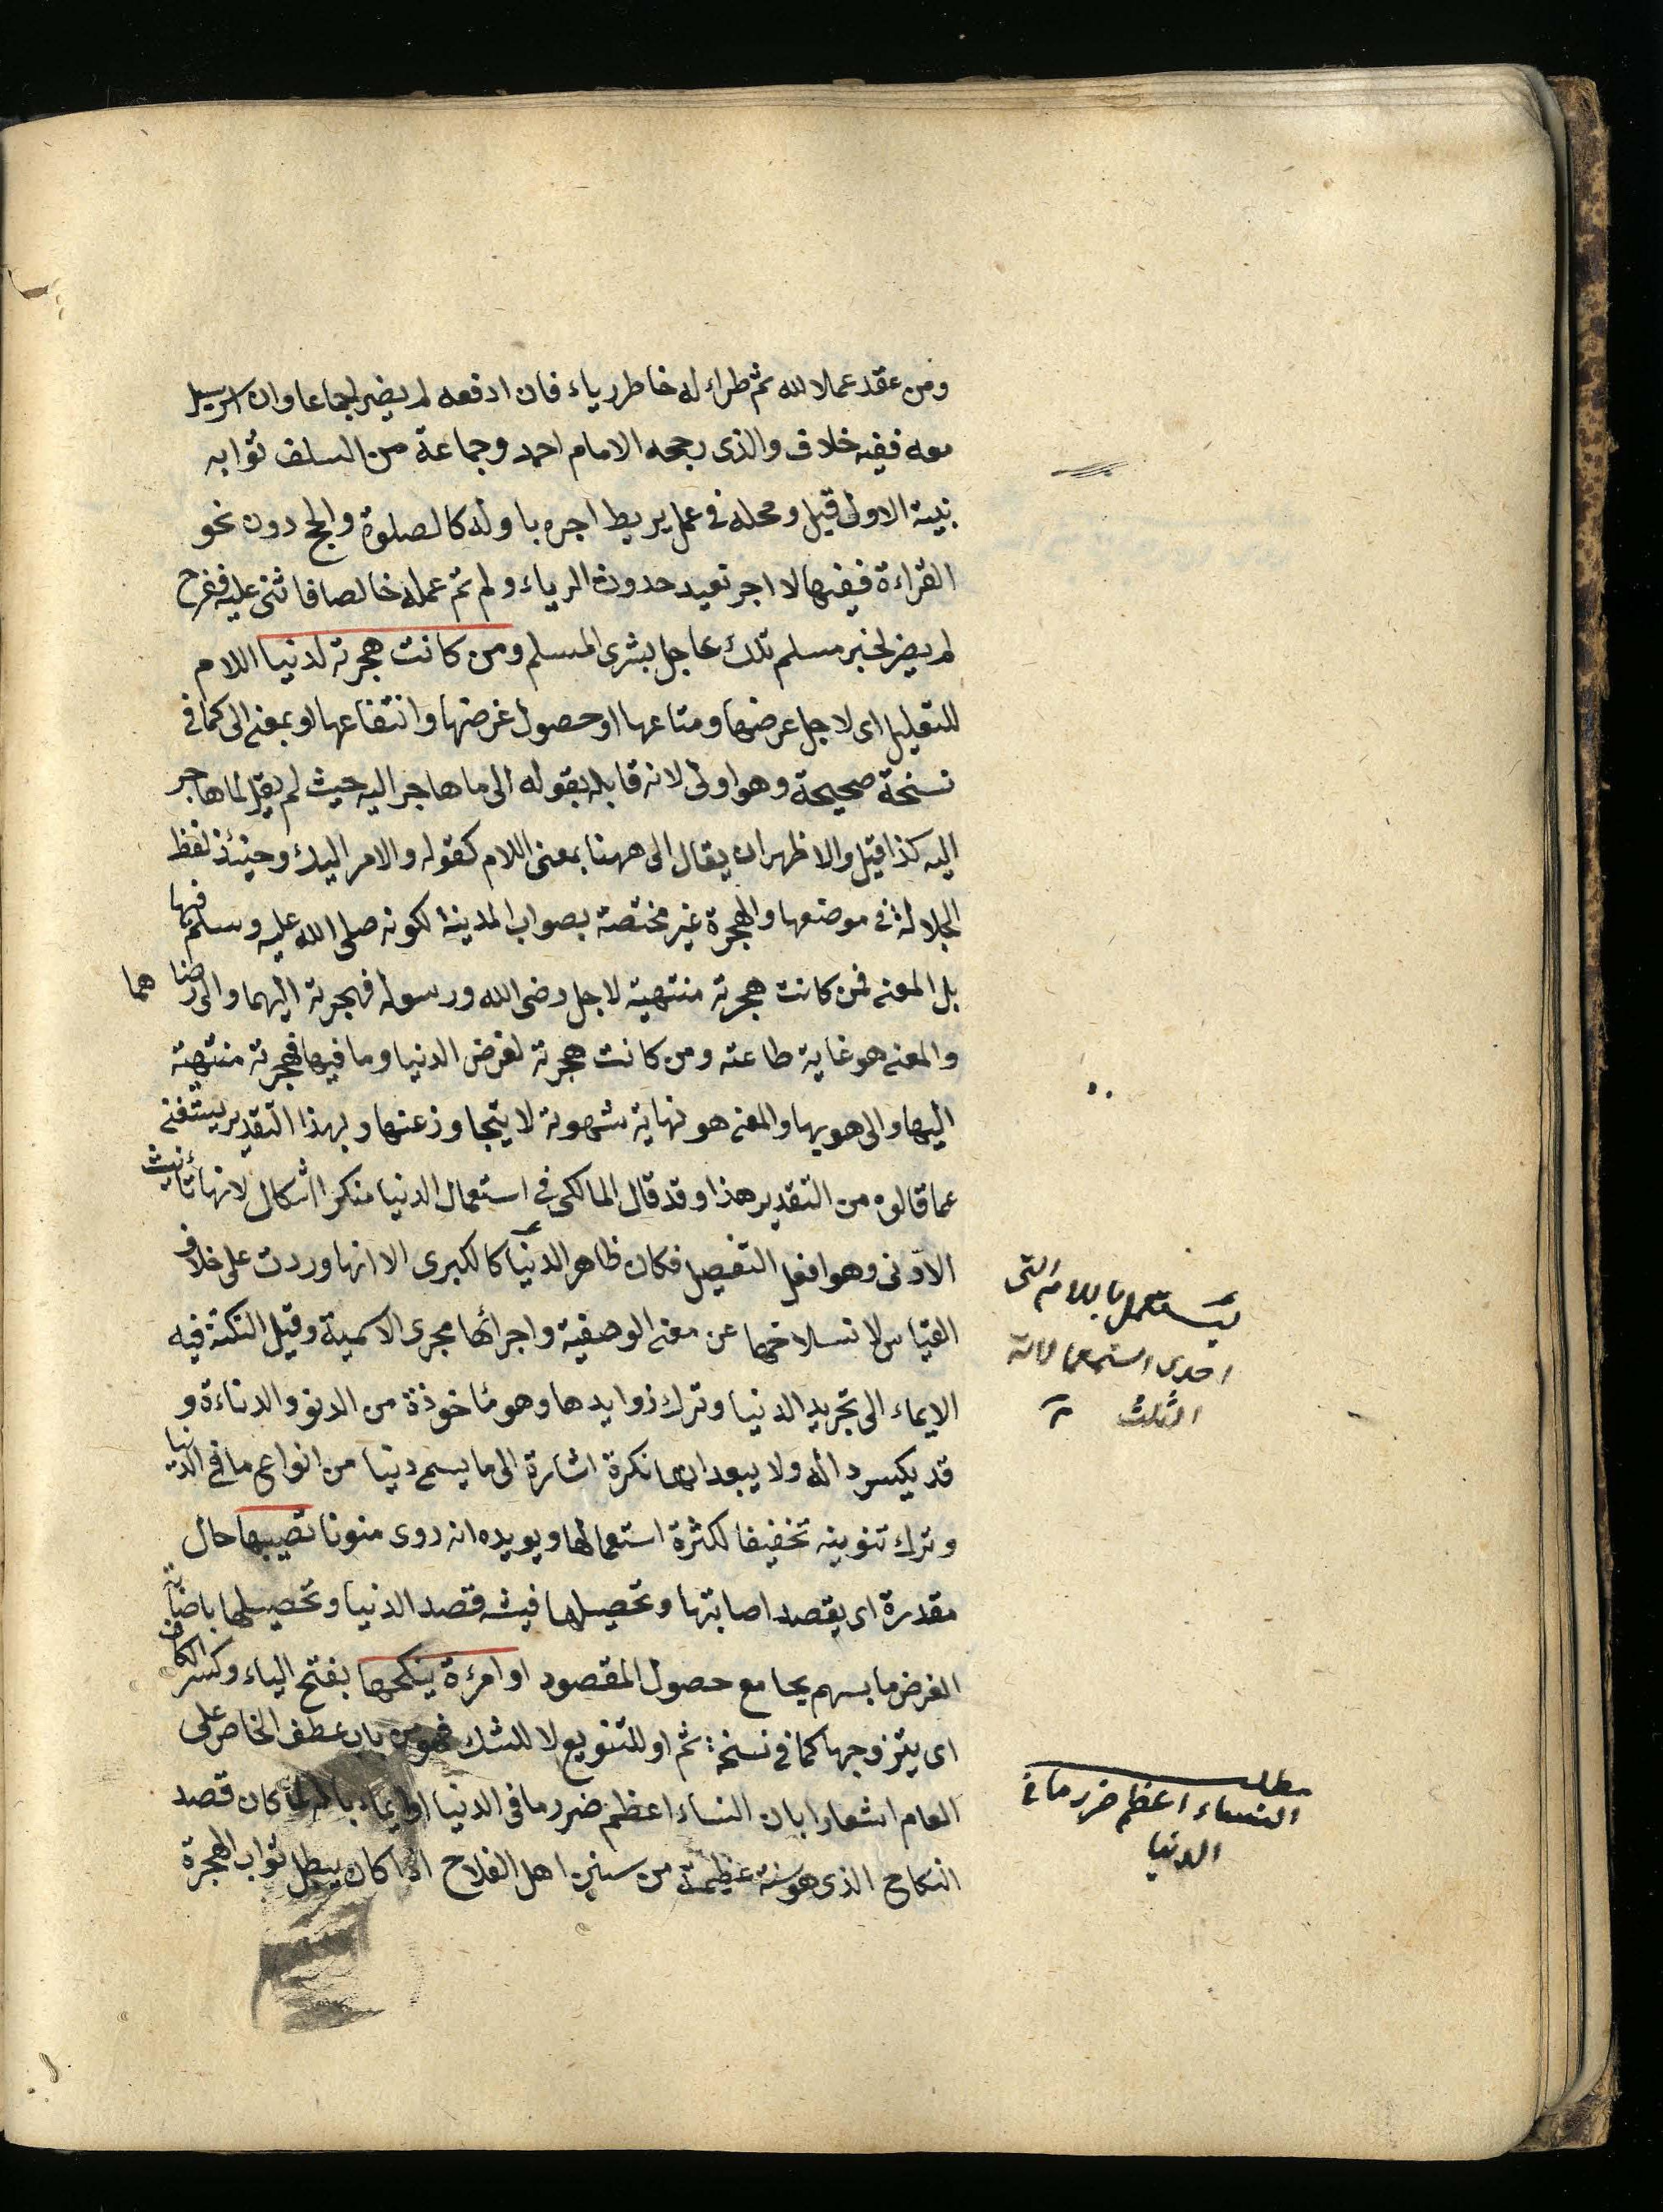 ومن عقد عملا لله ثم طراء له خاطر رياء فان ادفعه لم يضر اجماعا وان استرسل
معه ففيه خلاف والذى رجحه الامام احمد وجماعة من السلف ثوابه
بنية الاولى قيل ومحله في عمل يربط اجره باوله كالصلوة والحج دون نحو
القراءة ففيها لا اجر بعيد حدوث الرياء ولم تم عمله خالصا فاثنى عليه ففرح
لم يضر لخبر مسلم تلك عاجل بشرى المسلم ومن كانت هجرته لدنيا اللام
للتعليل اى لاجل عرضها ومتاعها او حصول غرضها وانتفاعها او بمعنى الى كما في
نسخة صحيحة وهو اولى لانه قابله بقوله الى ما هاجر اليه حيث لم يقل لما هاجر
اليه كذا قيل والاظهر ان يقال الى ههنا بمعنى اللام كقوله والامر اليك وحينئذ لفظ
الجلالة في موضعها والهجرة غير مختصة بصواب المدينة لكونه صلى الله عليه وسلم فيها
بل المعنى فمن كانت هجرته منتهية لاجل رضى الله ورسوله فهجرته اليهما والى رضاهما
والمعنى هو غاية طاعته ومن كانت هجرته لغرض الدنيا وما فيها فهجرته منتهية
اليها والى هويها والمعنى هو نهاية شهوته لا يتجاوز عنها وبهذا التقدير يستغنى
عما قالوه من التقدير هذا وقد قال المالكى في استعمال الدنيا منكرا اشكال لانها تأنيث
الادنى وهو افعل التفصيل فكان ظاهر الدنيا كالكبرى الا انها وردت على خلاف
القياس لانسلاخها عن معنى الوصفية واجرائها مجرى الاسمية وقيل النكتة فيه
الايماء الى تجريد الدنيا وترك زوايدها وهو مأخوذة من الدنو والدناءة و
قد يكسر داله ولا يبعد انها نكرة اشارة الى ما يسمى دنيا من انواع ما في الدنيا
وترك تنوينه تخفيفا لكثرة استعمالها ويويده انه روى منونا تصيبها حال
مقدرة اى يقصد اصابتها وتحصيلها فيشبه قصد الدنيا وتحصيلها باصابة
الغرض ما بسهم بجامع حصول المقصود او امرءة ينكحها بفتح الياء وكسر الكاف
اى يتزوجها كما في نسخة ثم او للتنويع لا للشك فهو من باب عطف الخاص على
العام اشعارا بان النساء اعظم ضرر ما فى الدنيا او ايماء كان قصد
النكاح الذى هو سنة عظيمة من سنن اهل الفلاح اذا كان يبطل ثواب الهجرة
يستعمل باللام التى
احدى استعمالاته
الثلث
مطلب
النساء اعظم ضرر ما في
الدنيا